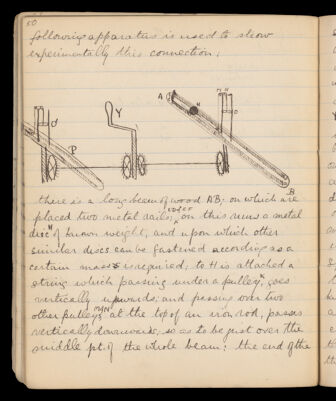 50
following apparatus is used to show
experimentally this connection.
A
H
Y
P
B
there is a long beam of wood AB; on which are
placed two metal rails, on this runs a metal
disc H of known weight, and upon which other
similar discs can be fastened according as a
certain mass is required; to H is attached a
string which passing under a pulley, goes
vertically upwards, and passing over two
other pulleys M&N at the top of an iron rod, passes
vertically downwards, so as to be just over the
middle pt. of the whole beam: the end of the